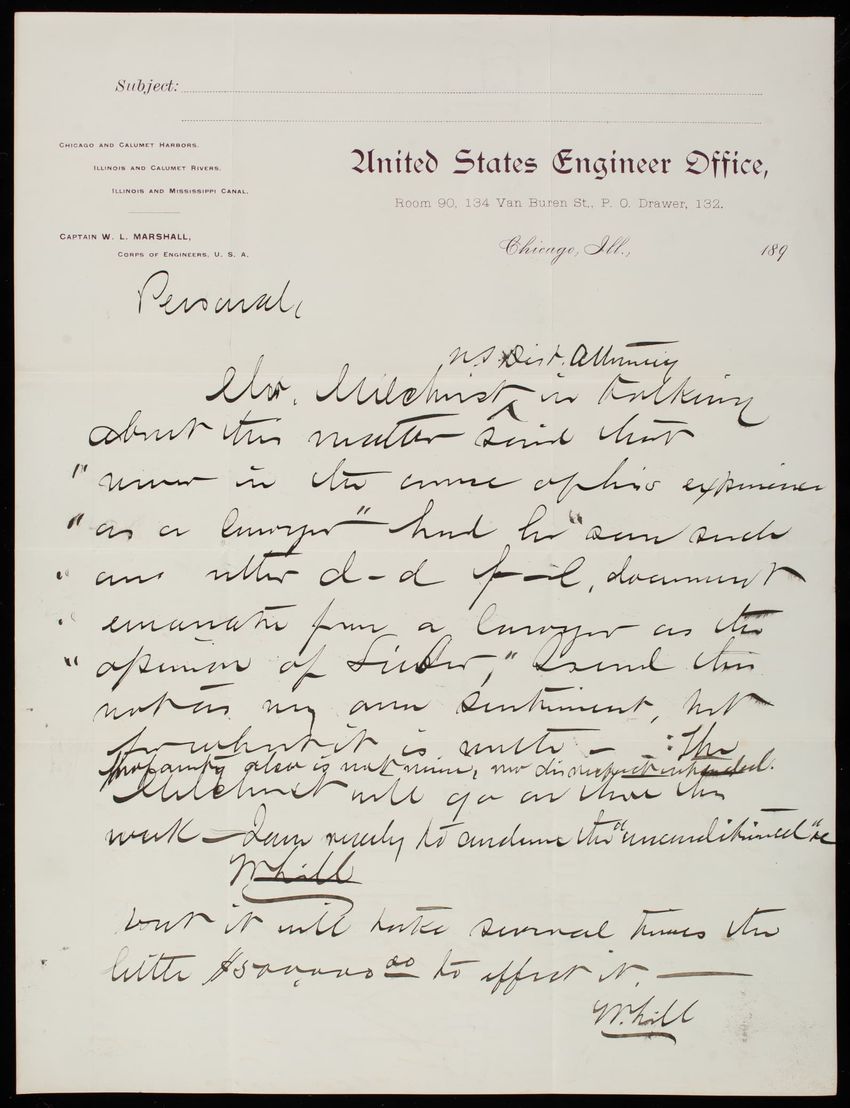 Subject:
CHICAGO AND CALUMET HARBORS.
ILLINOIS AND CALUMET RIVERS.
ILLINOIS AND MISSISSIPPI CANAL.
CAPTAIN W. L. MARSHALL,
CORPS OF ENGINEERS, U. S. A.
United States Engineer Office,
Room 90, 134 Van Buren St., P. O. Drawer, 132.
Chicago, Ill., 189
Personal,
U.S. Dist. Attorney
Mr. Milchrist ^ in talking
about this matter said that
"never in the course of his experience
"as a lawyer" had he "seen such
" an utter d-d f-l, document
" emanate from a lawyer as the
"opinion of Lieber," I send this
not as my own sentiment, but
for what it is worth - : The
profanity also is not mine, no disrespect intended.
Milchrist will go on this
week - I am ready to condemn the "unconditional"
W.hill
but it will take several times the
little $500,000 00 to effect it. —
W.hill